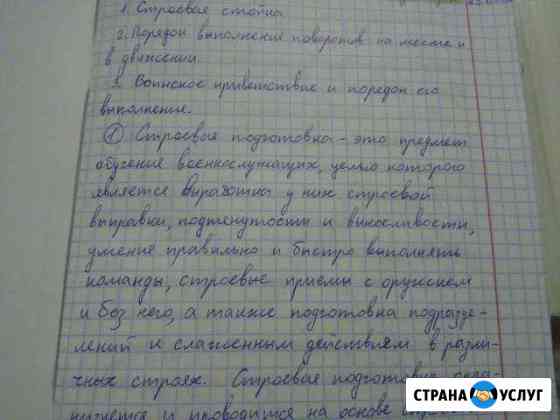 1. Строевая стойка
2. Порядок выполнения поворотов на месте и
в движении
3. Воинское приветствие и порядок его
выполнение.
① Строевая подготовка - это предмет
обучение военнослужащих, целью которого
является выработка у них строевой
выправки, подтянутости и выносливости,
умение правильно и быстро выполнять
команды, строевые приемы с оружием
и без него, а также подготовка подразде-
лений к слаженным действиям в разли-
чных строях. Строевая подготовка
и проводится на основе
СТРАНА УСЛУГ